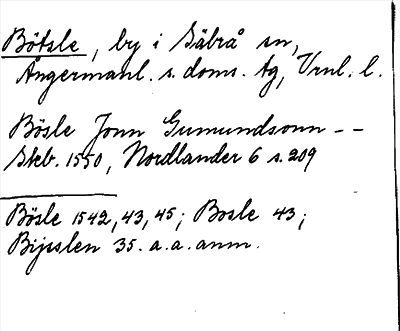 Bötsle, by i Säbrå sn,
Ångermanl. s. doms. tg, Vnl. l.
Bösle Jonn Gumundsonn - -
Skb. 1550, Nordlander 6 s. 209
Bösle 1542, 43, 45; Bosle 43;
Bijsslen 35. a. a. anm.